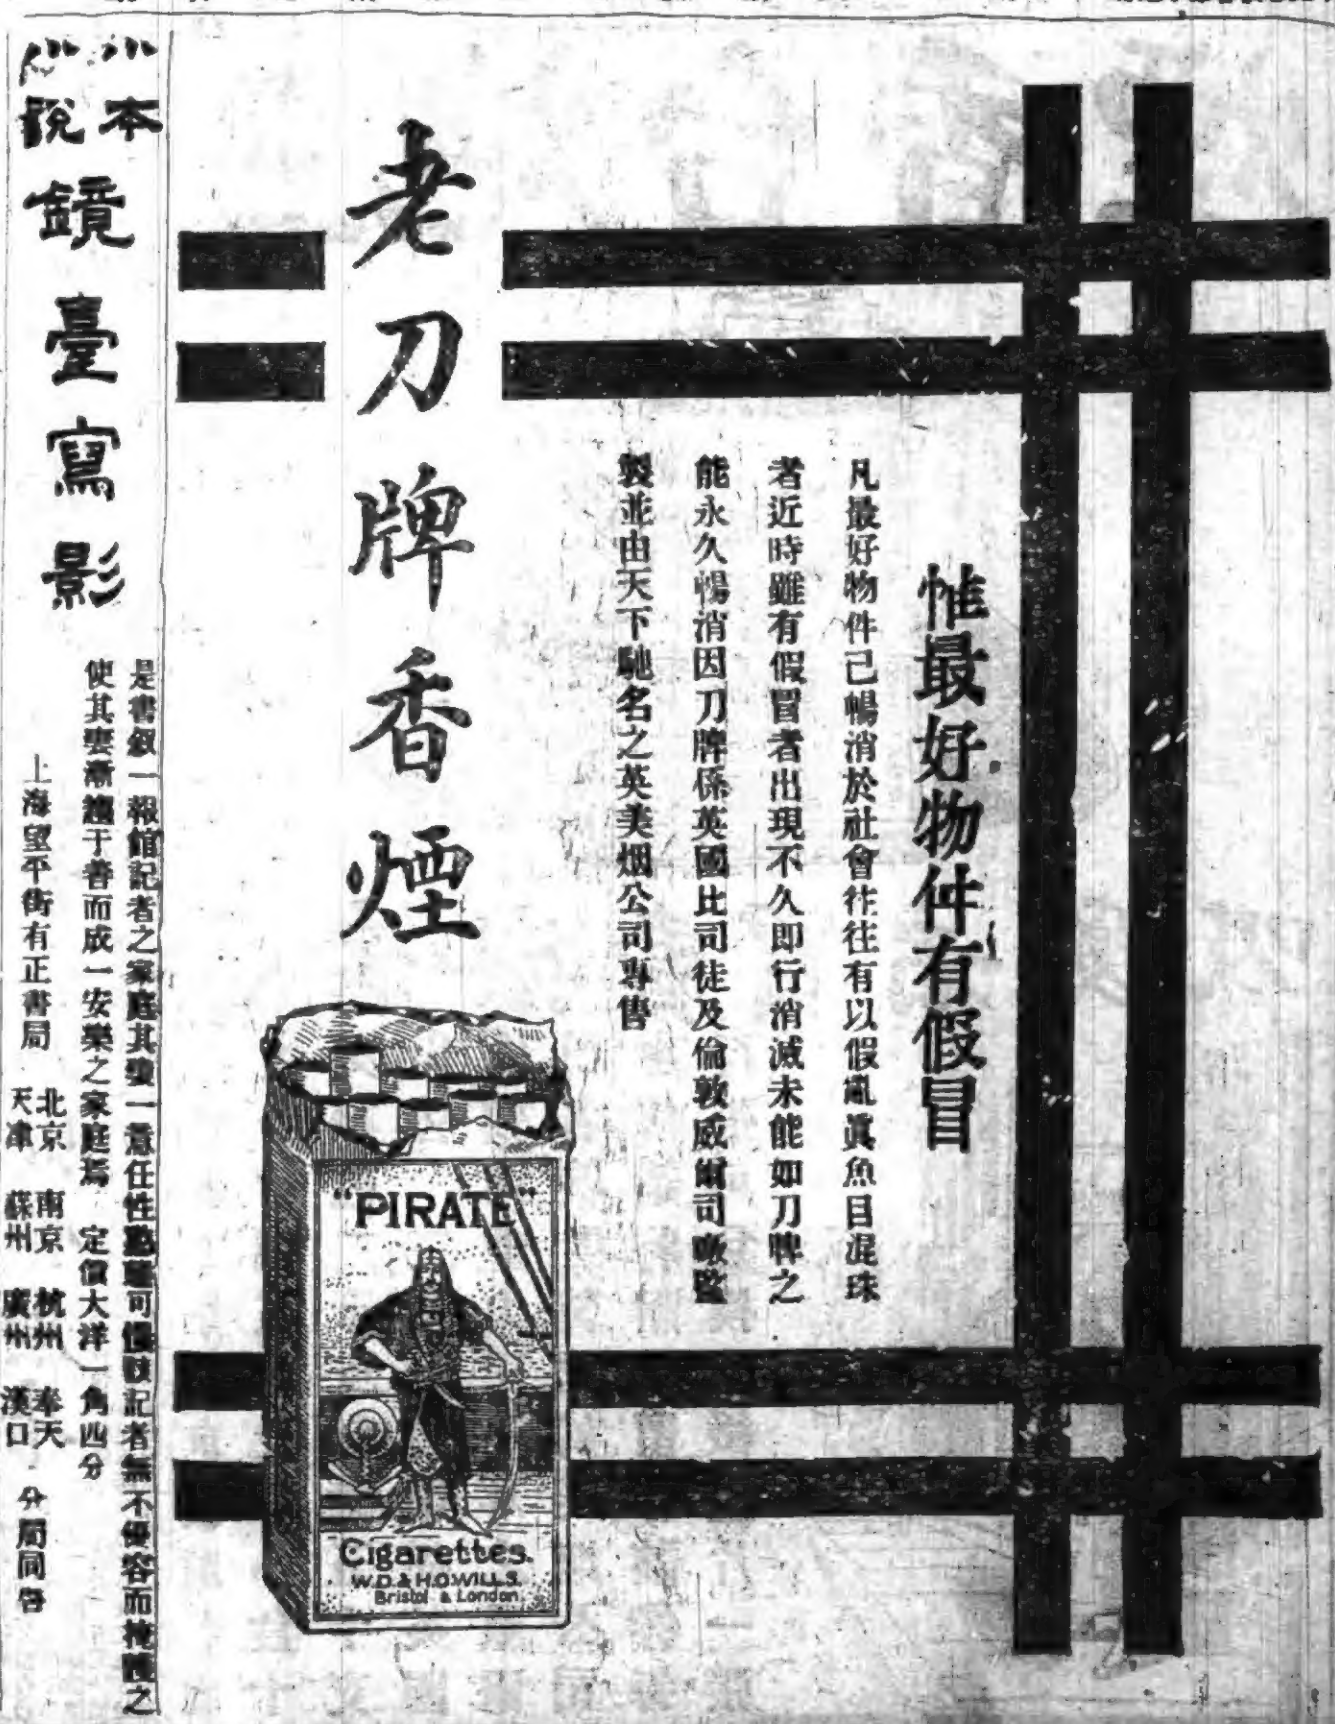 惟最好物件有假冒
凡最好物件已暢消於社會徃往有以假亂眞魚目混珠
者近時雖有假冒者出現不久即行消滅未能如刀牌之
能永久暢消因刀牌係英國比司徒及倫敦威爾司廠監
製並由天下馳名之英美烟公司專售
老刀牌香煙
"PIRATE"
Cigarettes.
W.D. & H.O. WILLS.
Bristol & London.
小本
小說
鏡臺寫影
是書叙一報館記者之家庭其妻一意任性 可 記者無不優容而 之
使其妻漸趨于善而成一安樂之家庭焉 定價大洋一角四分
上海望平街有正書局
北京 南京 杭州 奉天
天津 蘇州 廣州 漢口
分局同啓